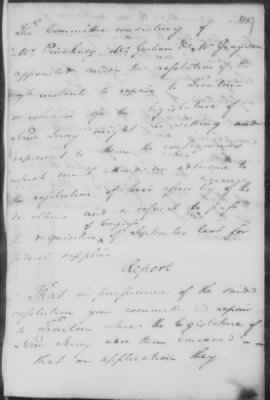 The Committee consisting of
Mr Pinckney, Mr Gorham & Mr Grayson
appointed under the resolution of the
instant to repair to Trenton
or wherever the legislature of
New Jersey might be sitting and
represent to them the consequences
which must attend its adherence to
the resolution of their assembly of the
a refusal to pass
of Congress
requisition of September last for
supplies
Report
That in pursuance of the said
resolution your committee did repair
to Trenton where the legislature of
New Jersey were then convened —
that on application they